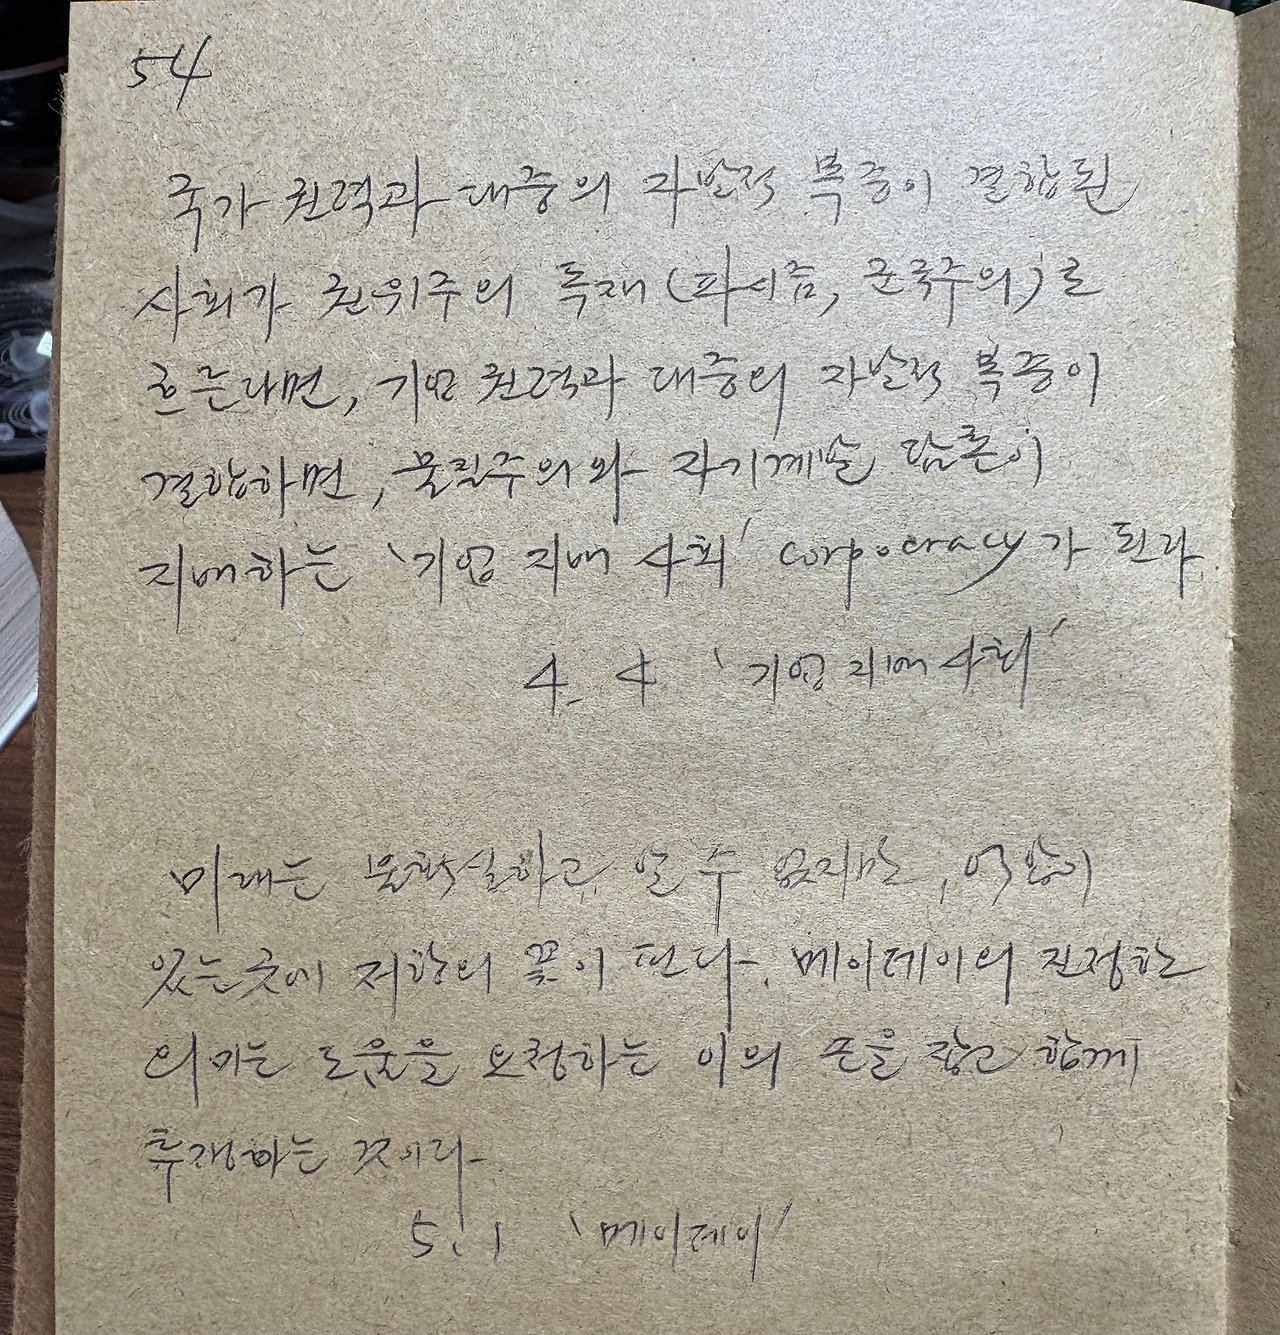 54
국가 권력과 대중의 자발적 복종이 결합된
사회가 권위주의 독재(파시즘, 군국주의)로
흐른다면, 기업 권력과 대중의 자발적 복종이
결합하면, 물질주의와 자기계발 담론이
지배하는 '기업 지배 사회' corpocracy가 된다.
4. 4 '기업 지배 사회'
미래는 불확실하고 알 수 없지만, 억압이
있는 곳에 저항의 꽃이 핀다. 메이데이의 진정한
의미는 도움을 요청하는 이의 손을 잡고 함께
투쟁하는 것이다.
5. 1 '메이데이'